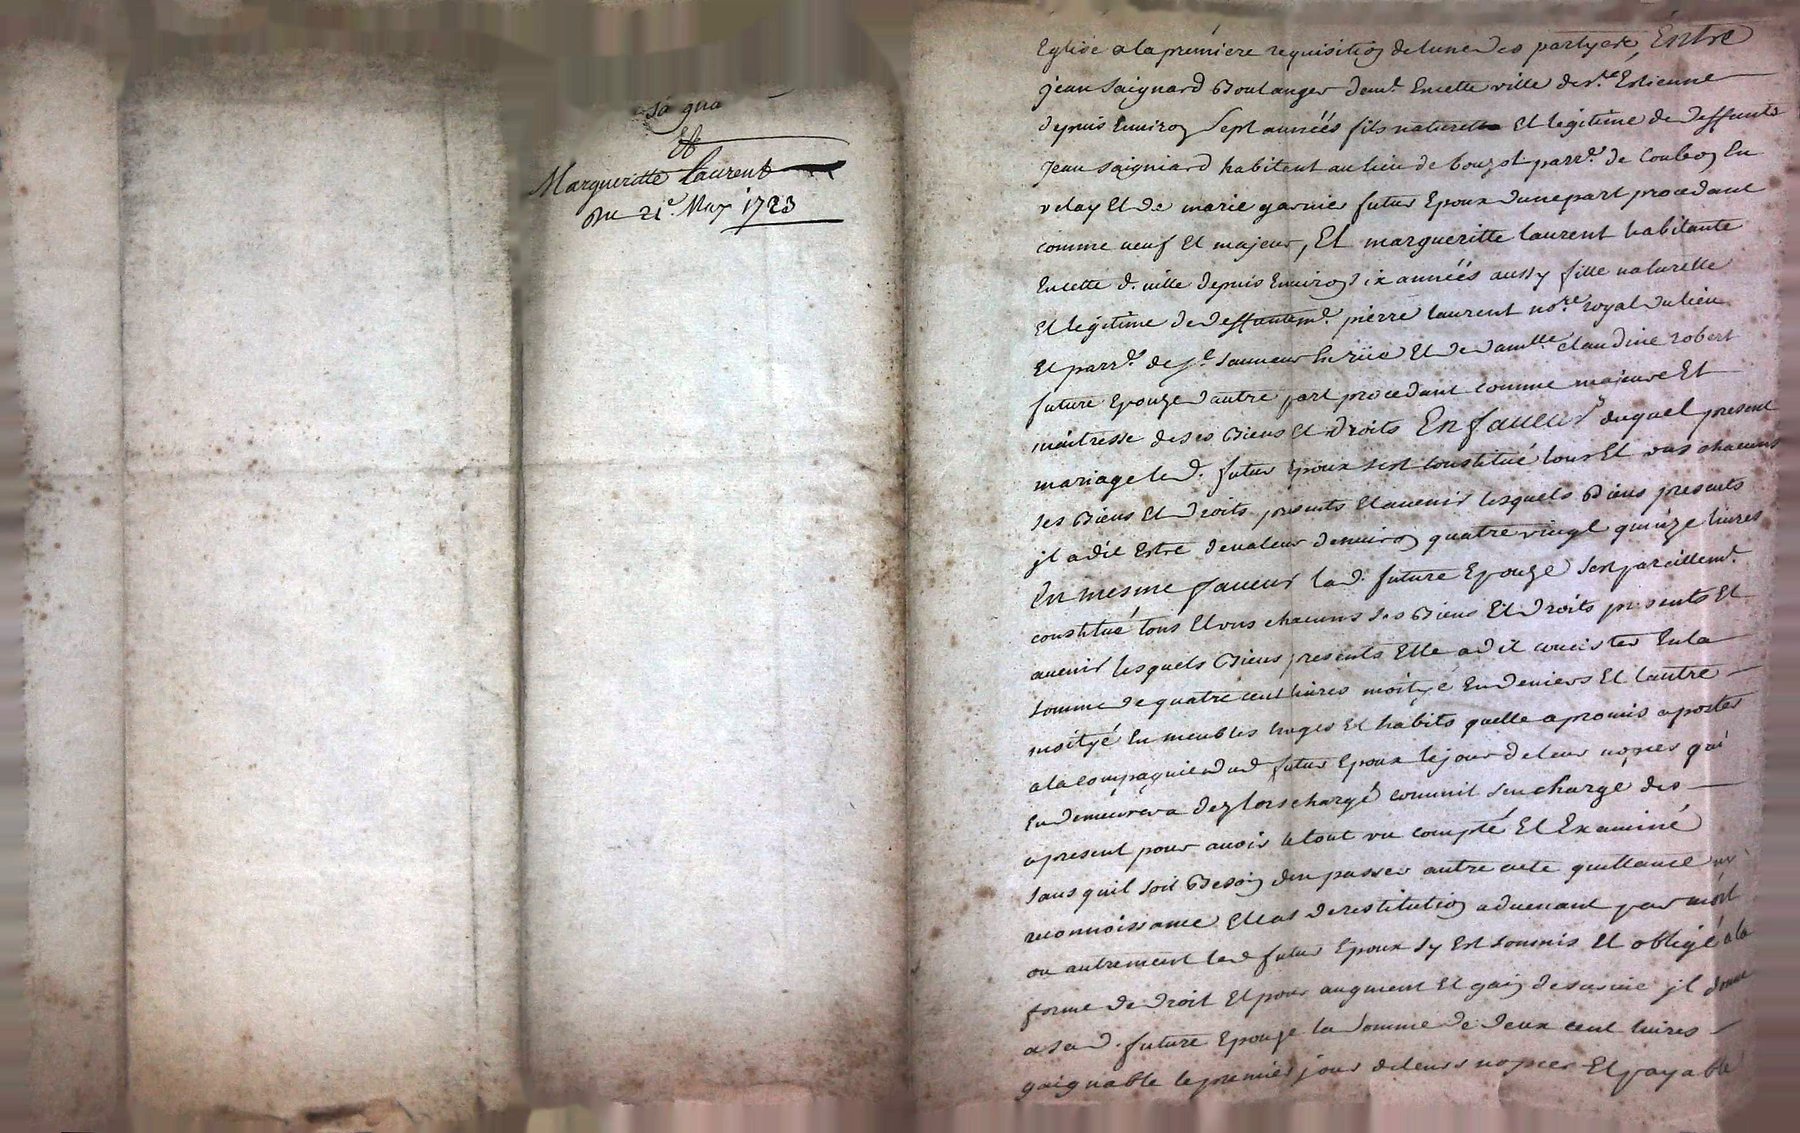 sa gna
Et
Margueritte laurent
Du 21e. May 1723
Eglise a la premiere requisition de lune des partyes, Entre
jean saignard Boulanger demt. En cette ville de st. Estienne
depuis Enuiron sept années fils naturel Et legitime de deffunts
jean saigniard habitant au lieu de parr.e de Coubon En
velay Et de marie garnier futur Epoux dune part procedant
comme veuf Et majeur, Et margueritte laurent habitante
En cette d. ville depuis Enuiron six années aussy fille naturelle
Et legitime de deffunt m.e pierre laurent no.re royal du lieu
Et parr.e de st. sauueur En rüe Et de dam.lle claudine robert
future Epouze dautre part procedant comme majeure Et
maitresse de ses Biens Et droits En faueur duquel present
mariage le d. futur Epoux sest constitué tous Et uns chacuns
ses Biens Et droits presents Et auenir lesquels Biens presents
jl a dit Estre de valeur denuiron quatre vingt quinze liures
En mesme faueur la d. future Epouze sest pareillemt.
constitué tous Et uns chacuns ses Biens Et droits presents Et
auenir lesquels Biens presents Elle a dit concister En la
somme de quatre cent liures moityé En deniers Et lautre
moityé En meubles linges Et habits quelle a promis aporter
a la compagnie dud futur Epoux le jour de leur nopces qui
En demeurera dez lors chargé comme il sen charge des
a present pour auoir le tout vu compté Et Examiné
sans quil soit Besoin den passer autre acte quittance ny
reconnoissance Et cas de restitution aduenant par mort
ou autrement led futur Epoux sy Est soumis Et obligé a la
forme de droit Et pour augment Et gain de suruie jl donne
a sa d. future Epouze la somme de deux cent liures
gaignable le premier jour de leurs nopces Et payable